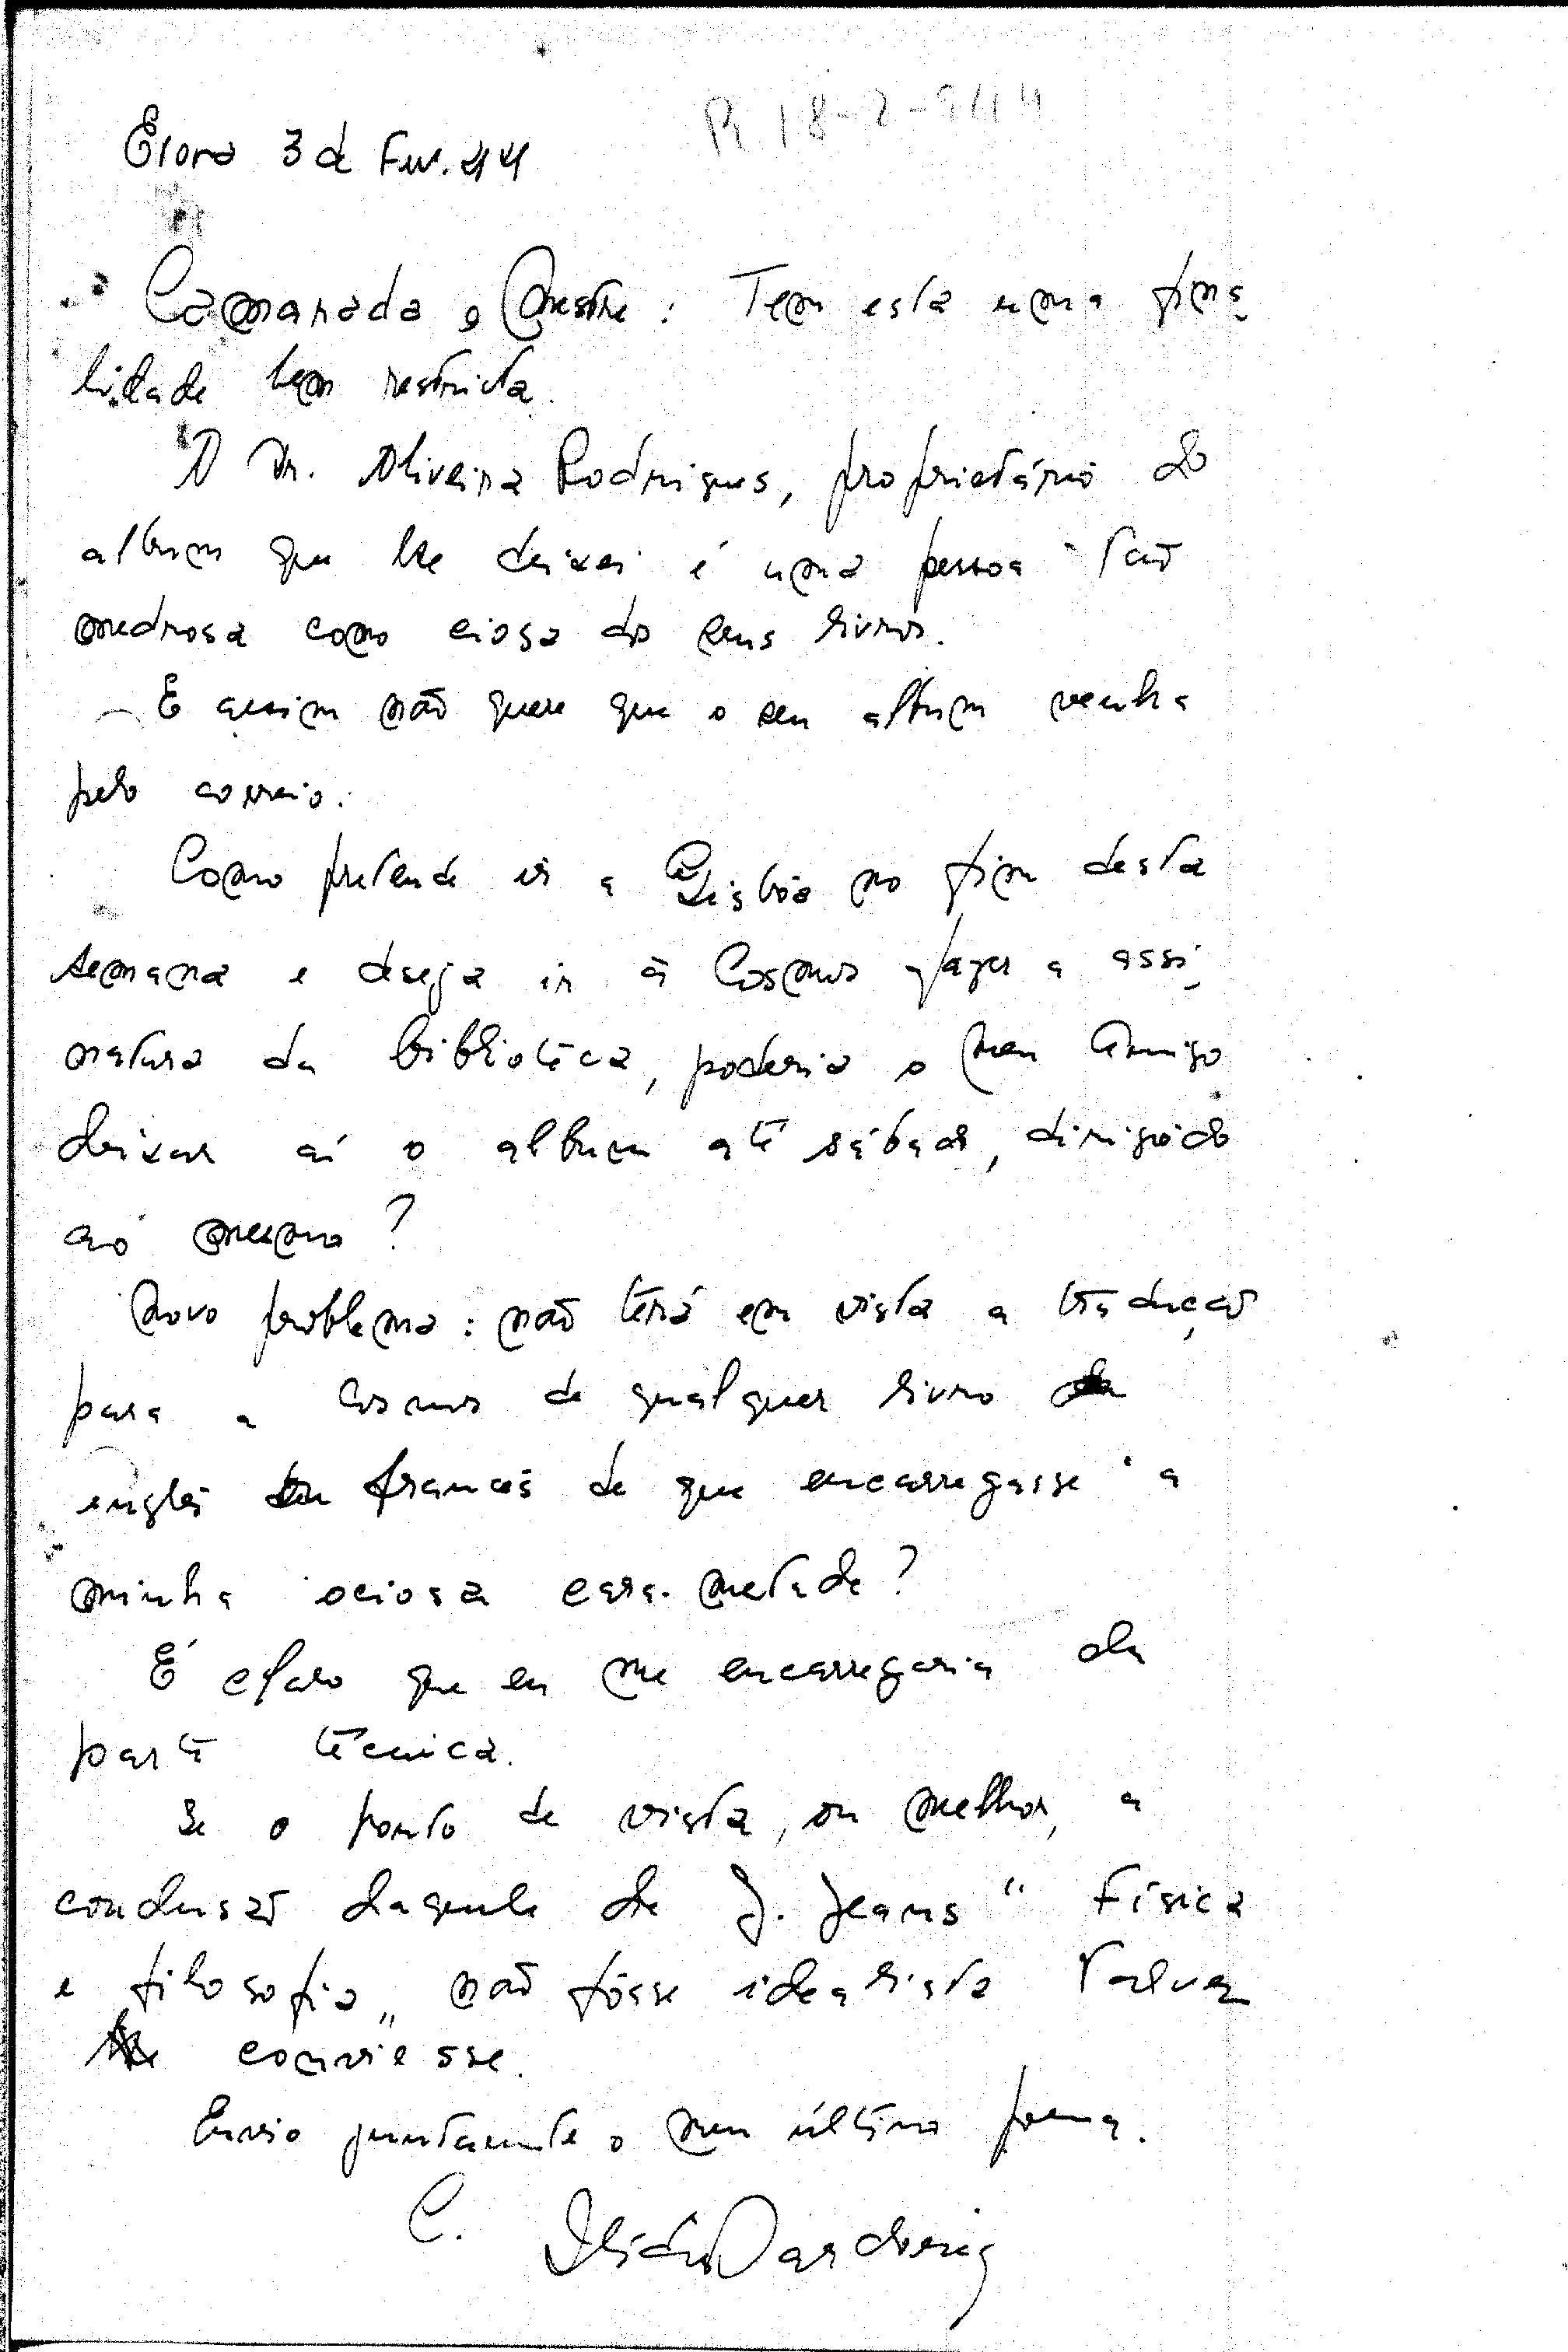 R 18-2-944
Évora 3 de Fev. 44
Camarada e Mestre: Tem esta uma fina
lidade bem restricta.
O Dr. Oliveira Rodrigues, proprietário do
album que lhe deixei é uma pessoa tão
medrosa como ciosa dos seus livros.
E assim não quere que o seu album venha
pelo correio.
Como pretende ir a Lisboa no fim desta
semana e deseja ir à Cosmos fazer a assi
natura da biblioteca, poderia o meu Amigo
deixar aí o album até sábado, dirigido
ao mesmo?
Novo problema: não terá em vista a tradução
para a Cosmos de qualquer livro
inglês ou francês de que encarregasse a
minha ociosa cara-metade?
É claro que eu me encarregaria da
parte técnica.
Se o ponto de vista, ou melhor, a
conclusão daquele de J. Jeans "Física
e filosofia" não fôsse idealista talvez
conviesse.
Envio juntamente o meu último poema.
C. Ilídio Sardoeira